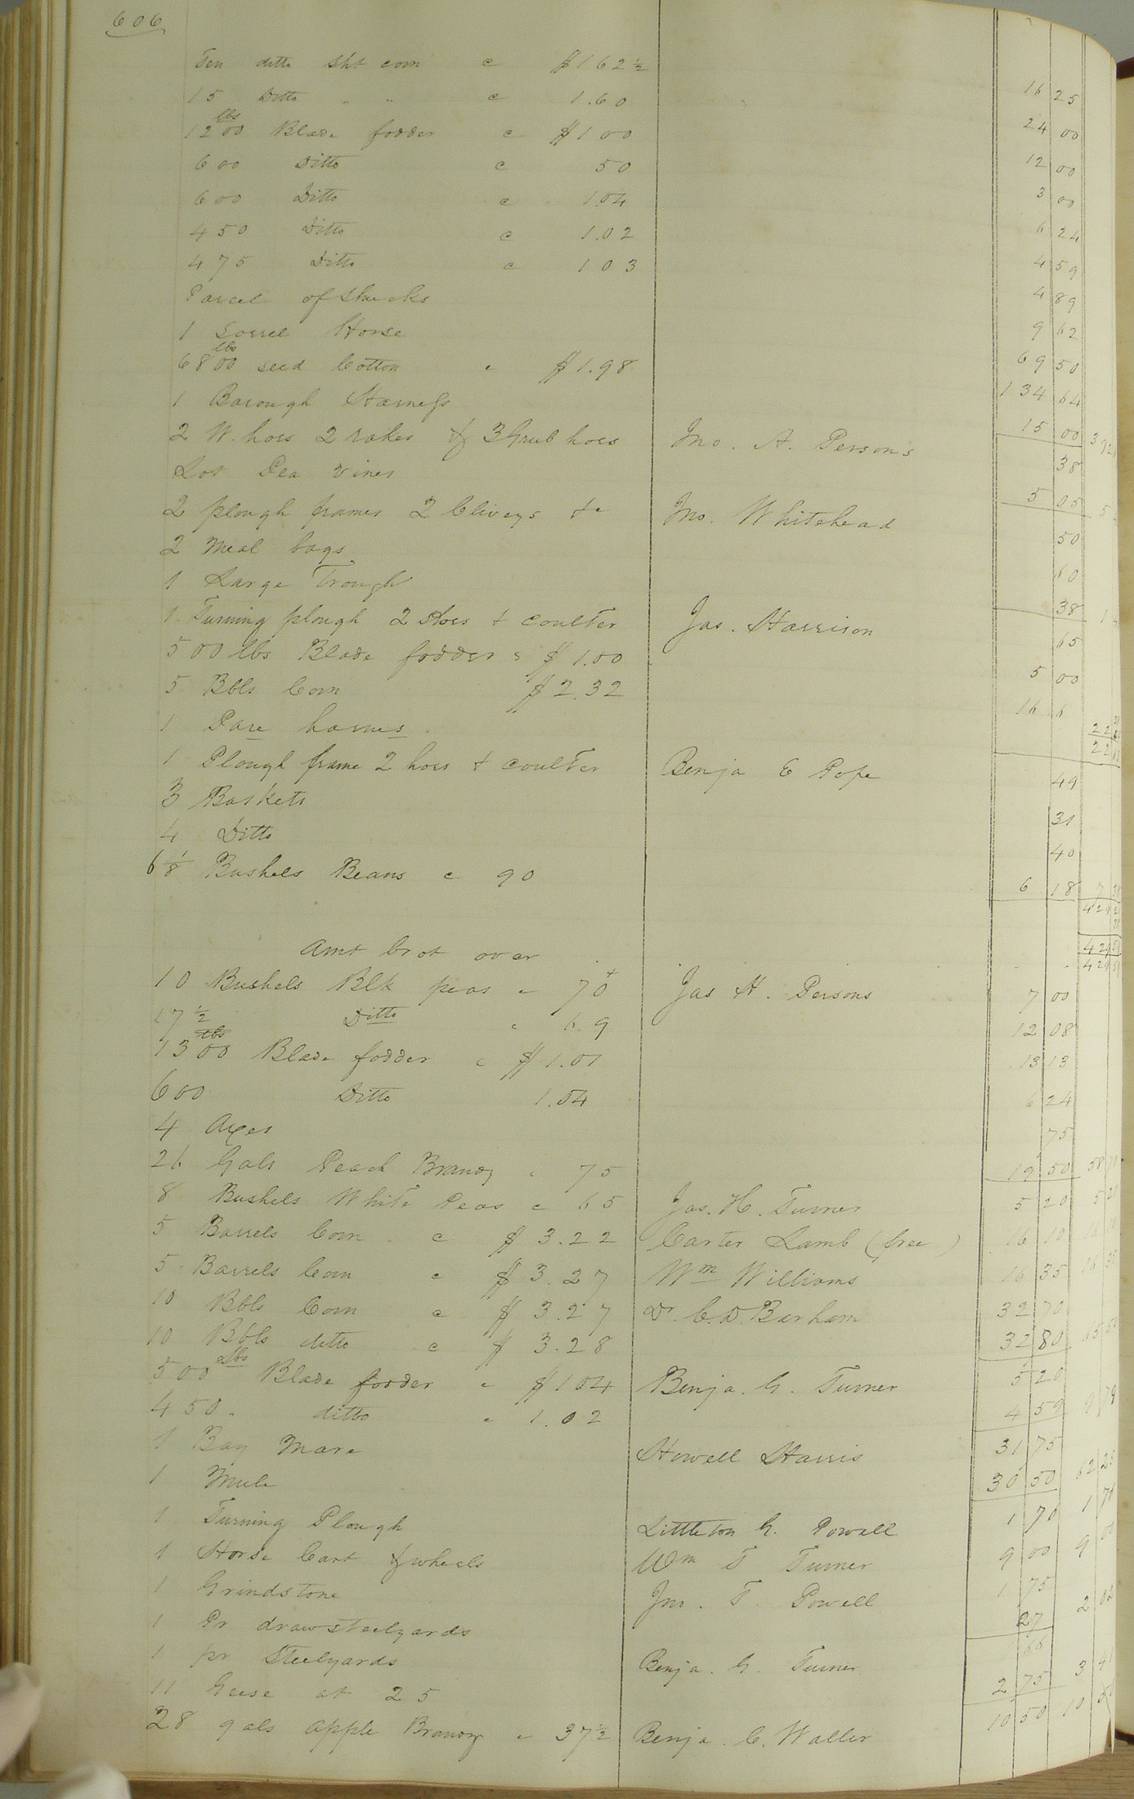 606
Ten ditto Sht corn c $162½ 16 25
15 Ditto " " c 1.60 24 00
1200 lbs Blade fodder c $1 00 12 00
600 Ditto c 50 3 00
600 Ditto c 1.04 6 24
450 Ditto c 1.02 4 59
475 Ditto c 1 03 4 89
Parcel of Shucks 9 62
1 Sorrel Horse 69 50
6800 lbs seed Cotton c $1.98 134 64
1 Barough Harness 15 00
2 W. hoes 2 rakes & 3 Grub hoes Jno. A. Persons 38
Lot Pea vines 5 05
2 plough frames 2 Cliveys &c Jno. Whitehead 50
2 Meal bags 60
1 Large Trough 38
1 Turning plough 2 Hoes & coulter Jas. Harrison 65
500 lbs Blade fodder c $1.00 5 00
5 Bbls Corn $2.32 16 6
1 Pare hames
1 Plough frame 2 hoes & coulter Benja E Pope 49
3 Baskets 31
4 Ditto 40
6⅛ Bushels Beans c 90 6 18
Amt brot over
10 Bushels Blk peas c 70 Jas H. Persons 7 00
17½ Ditto c 69 12 08
1300 lbs Blade fodder c $1.01 13 13
600 Ditto 1.04 6 24
4 Axes 75
26 Gals Peach Brandy c 75 19 50
8 Bushels White Peas c 65 Jas. H. Turner 5 20
5 Barrels Corn c $3.22 Carter Lamb (free) 16 10
5 Barrels Corn c $3.27 Wm Williams 16 35
10 Bbls Corn c $3.27 Dr. C. D. Barham 32 70
10 Bbls ditto c $3.28 32 80
500 Lbs Blade fodder c $1 04 Benja. G. Turner 5 20
450 ditto c 1.02 4 59
1 Bay Mare Howell Harris 31 75
1 Mule 30 50
1 Turning Plough Littleton G. Powell 1 70
1 Horse Cart & wheels Wm T Turner 9 00
1 Grindstone Jno. T. Powell 1 75
1 Pr drawsteelyards 27
1 pr Steelyards Benja. G. Turner 66
11 Geese at 25 2 75
28 gals apple Brandy c 37½ Benja. C. Waller 10 50